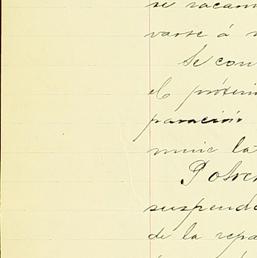 se
varse á
Se con
el próxim
paración
nunie la
Potre
suspende
de la repa